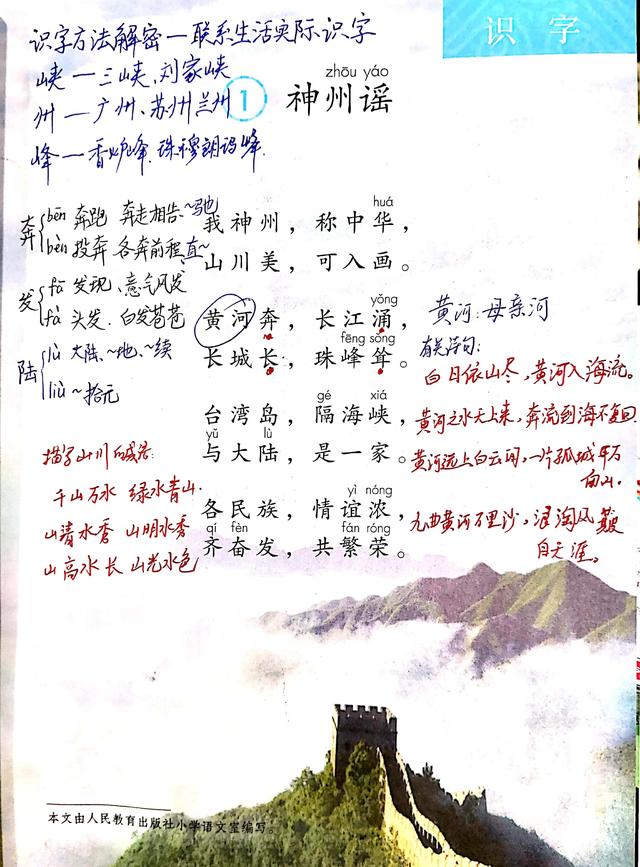 识字方法解密一联系生活实际识字
识字
峡一三峡、刘家峡
州一广州、苏州兰州
峰一香炉峰.珠穆朗玛峰.
zhōu yáo
① 神州谣
奔 bēn 奔跑 奔走相告、~驰
bèn 投奔 各奔前程、直~
发 fā 发现、意气风发
fà 头发、白发苍苍
陆 lù 大陆、~地、~续
liù ~拾元
huá
我神州，称中华，
山川美，可入画。
yǒng
黄河奔，长江涌，
fēng sǒng
长城长，珠峰耸。
gé xiá
台湾岛，隔海峡，
yǔ lù
与大陆，是一家。
yì nóng
各民族，情谊浓，
qí fèn fán róng
齐奋发，共繁荣。
黄河：母亲河
有关诗句：
白日依山尽，黄河入海流。
黄河之水天上来，奔流到海不复回.
黄河远上白云间，一片孤城万
仞山.
九曲黄河万里沙，浪淘风簸
自天涯。
描写山川的成语：
千山万水 绿水青山.
山清水秀 山明水秀
山高水长 山光水色
本文由人民教育出版社小学语文室编写。